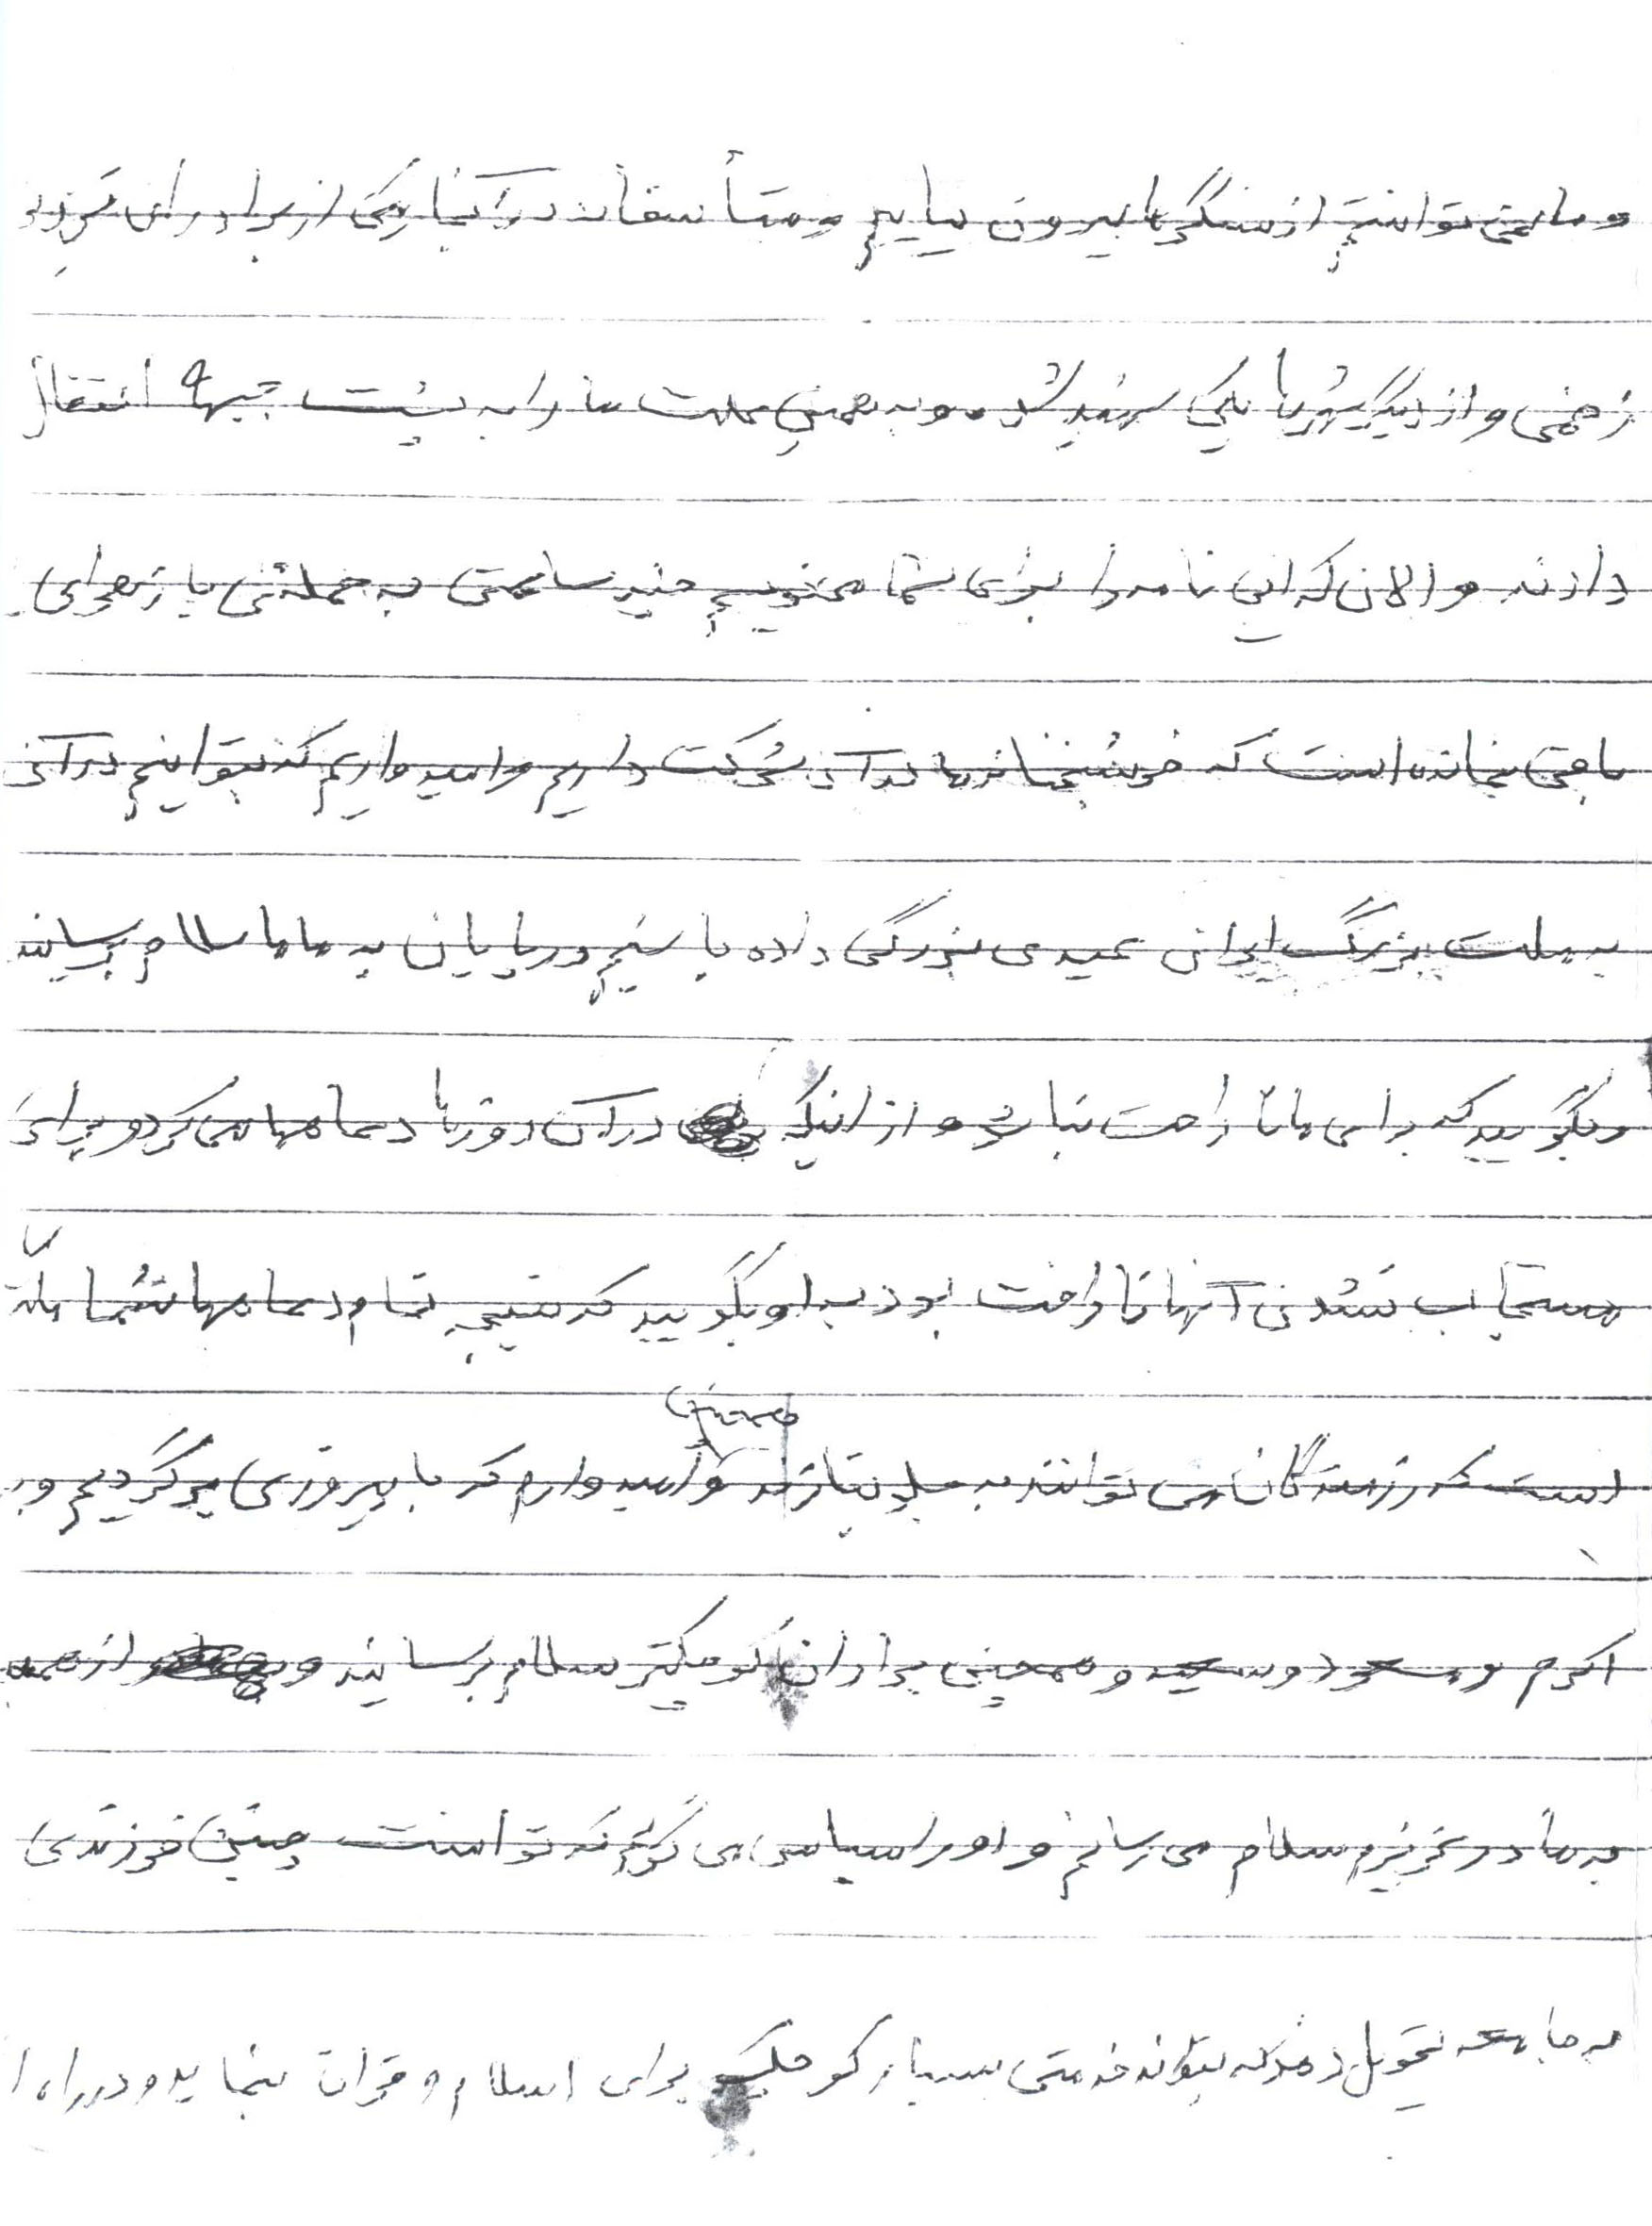 و ما نمی توانستیم از سنگرها بیرون بیاییم و متأسفانه در آنجا یکی از برادران
زخمی و از دیگر شهرها یکی شهید شد و به همین علت ما را به پشت جبهه انتقال
دادند و الان که این نامه را برای شما می نویسم چند ساعتی به حمله ئی با زهرای
باقی نمانده است که خوشبختانه ما در آن شرکت داریم و امیدواریم که بتوانیم در آن
به ملت بزرگ ایران عیدی بزرگی داده باشیم و در پایان به ماما سلام برسانید
و بگویید که برای ما ناراحت نباشد و از اینکه در آن روزها دعاها می کرد و برای
مستجاب نشدن آنها ناراحت بود به او بگویید که نتیجه تمام دعاهها شما
است که رزمندگان می توانند به جلو بتازند و همچنین امیدوارم که با پیروزی برگردیم و به
اکرم و مسعود و سعید و همچنین برادران کوچکتر سلام برسانید و از همه
به مادر عزیزم سلام می رسانم و او را سپاس می گویم که توانست چنین فرزندی
به جامعه تحویل دهد که بتواند خدمتی بسیار کوچک برای اسلام و قرآن بنماید و در راه ا